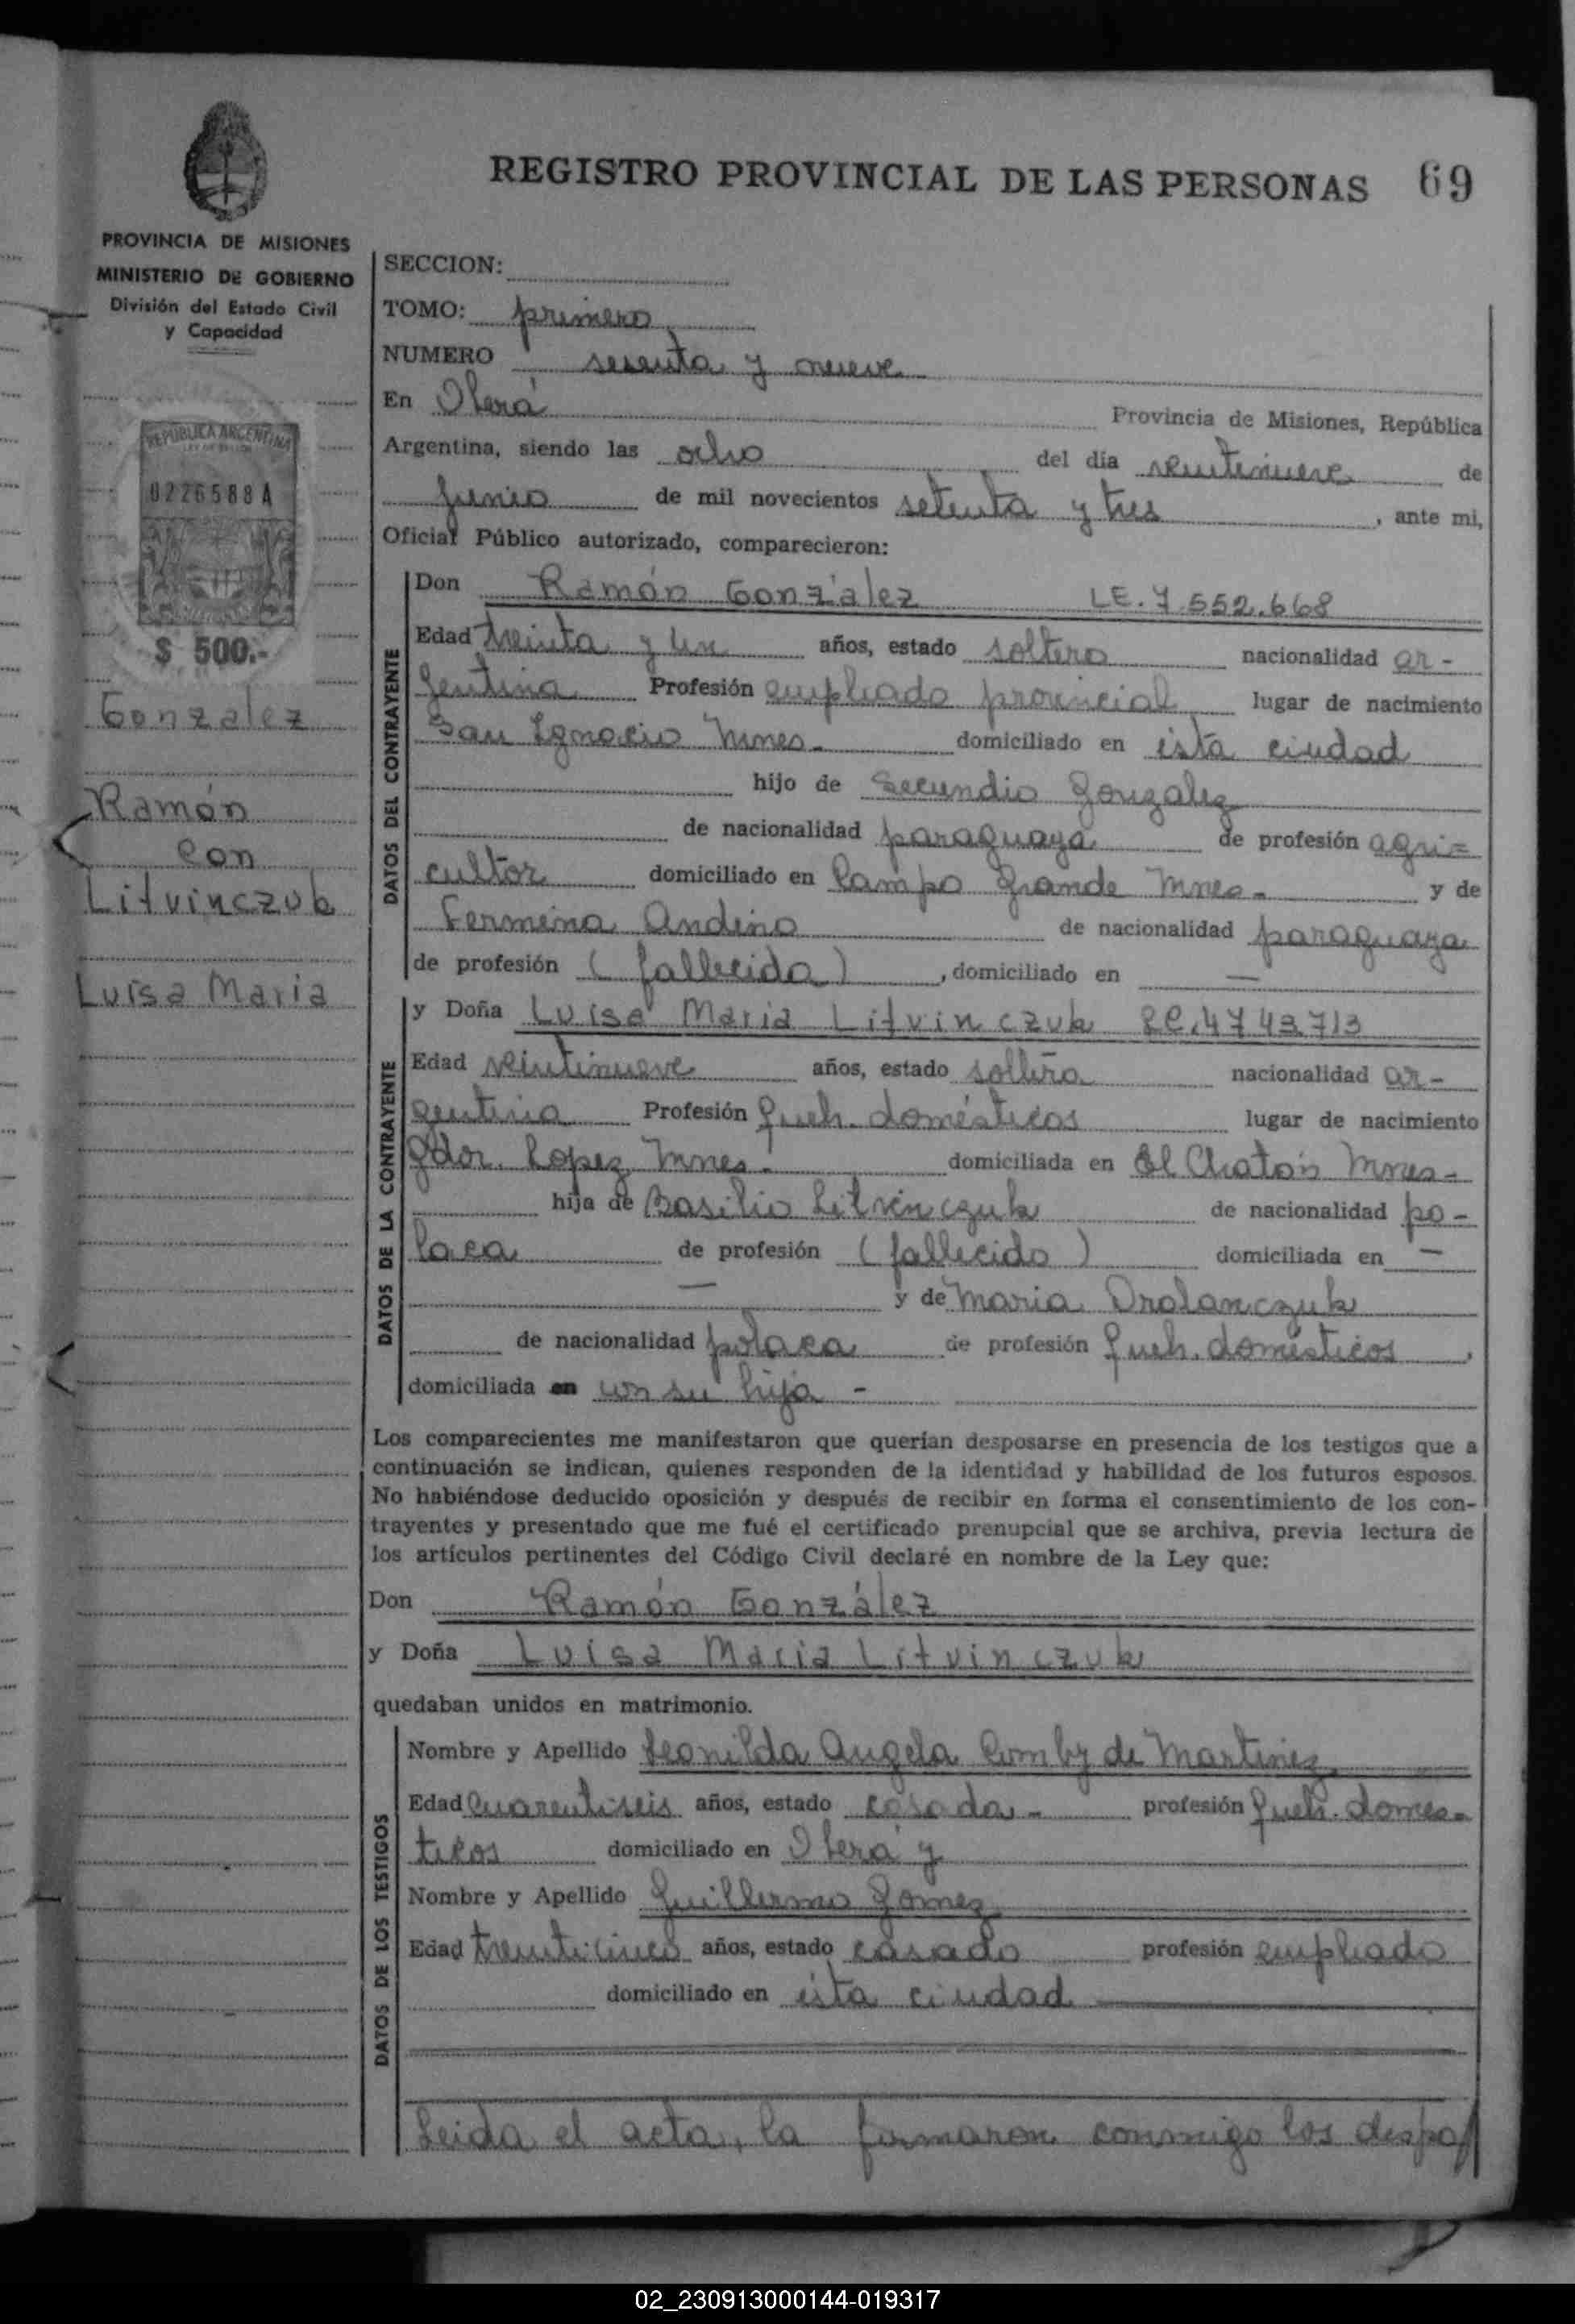 REGISTRO PROVINCIAL DE LAS PERSONAS 69
PROVINCIA DE MISIONES
MINISTERIO DE GOBIERNO
División del Estado Civil
y Capacidad
REPUBLICA ARGENTINA
0226588A
$ 500.-
Gonzalez
Ramón
con
Litvinczuk
Luisa Maria
SECCION:
TOMO: primero
NUMERO sesenta y nueve
En Oberá Provincia de Misiones, República
Argentina, siendo las ocho del día veintinueve de
Junio de mil novecientos setenta y tres, ante mi,
Oficial Público autorizado, comparecieron:
DATOS DEL CONTRAYENTE
Don Ramón González LE. 7.552.668
Edad treinta y un años, estado soltero nacionalidad ar-
gentina Profesión empleado provincial lugar de nacimiento
San Ignacio Mnes. domiciliado en ésta ciudad
hijo de Secundio Gonzalez
de nacionalidad paraguaya de profesión agri=
cultor domiciliado en Campo Grande Mnes- y de
Fermina Andino de nacionalidad paraguaya
de profesión (fallecida), domiciliado en —
DATOS DE LA CONTRAYENTE
y Doña Luisa Maria Litvinczuk LC. 4743713
Edad veintinueve años, estado soltera nacionalidad ar-
gentina Profesión queh. domésticos lugar de nacimiento
Gdor. Lopez Mnes.- domiciliada en El Chatón Mnes-
hija de Basilio Litvinczuk de nacionalidad po-
laca de profesión (fallecido) domiciliada en —
— y de Maria Drolanczuk
de nacionalidad polaca de profesión queh. domésticos,
domiciliada en con su hija -
Los comparecientes me manifestaron que querían desposarse en presencia de los testigos que a
continuación se indican, quienes responden de la identidad y habilidad de los futuros esposos.
No habiéndose deducido oposición y después de recibir en forma el consentimiento de los con-
trayentes y presentado que me fué el certificado prenupcial que se archiva, previa lectura de
los artículos pertinentes del Código Civil declaré en nombre de la Ley que:
Don Ramón González
y Doña Luisa Maria Litvinczuk
quedaban unidos en matrimonio.
DATOS DE LOS TESTIGOS
Nombre y Apellido Leonilda Angela Comby de Martinez
Edad cuarentiseis años, estado casada.- profesión queh. domes-
ticos domiciliado en Oberá y
Nombre y Apellido Guillermo Gomez
Edad trenticinco años, estado casado profesión empleado
domiciliado en ésta ciudad
Leida el acta, la firmaron conmigo los despo
02_230913000144-019317